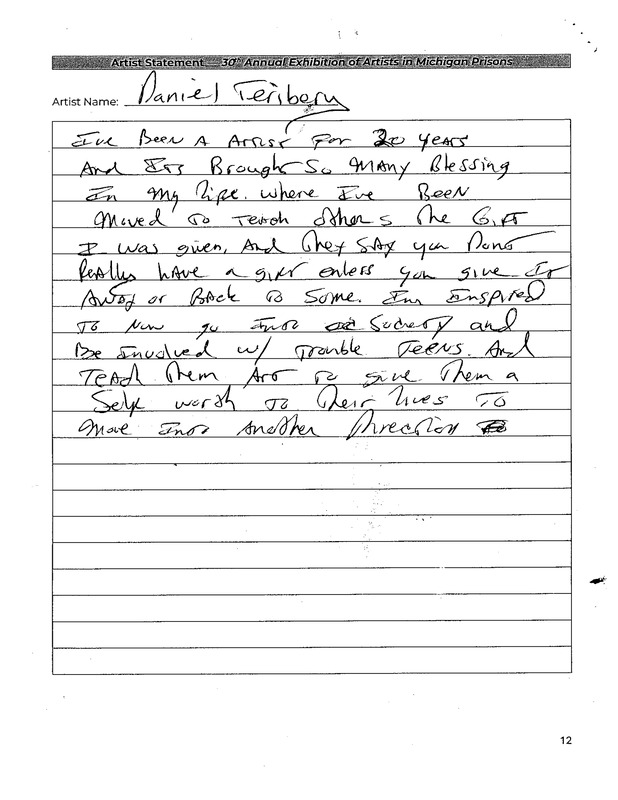 Artist Statement — 30th Annual Exhibition of Artists in Michigan Prisons
Artist Name: Daniel Teribery
I've Been A Artist for 30 years
And Its Brought So Many Blessing
In My life. where I've Been
Moved To Teach others The Gift
I was given, And They SAY you Dont
Really have a gift enless you give It
Away or Back to Some. I'm Inspired
To Now go Into Society and
Be Involved w/ Trouble Teens. And
Teach Them Art To give Them a
Self worth To Their lives To
Move Into Another Direction
12